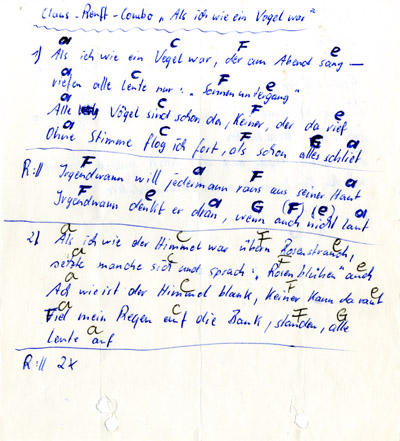 Claus-Renft-Combo „Als ich wie ein Vogel war“
a C F e
1) Als ich wie ein Vogel war, der am Abend sang —
a C F e
riefen alle Leute nur: „Sonnenuntergang“
a C F e
Alle Vögel sind schon da, keiner, der da rief
a C F G a
Ohne Stimme flog ich fort, als schon alles schlief
F a F a
R:|| Irgendwann will jedermann raus aus seiner Haut
F e a G (F) (e) a
Irgendwann denkt er dran, wenn auch nicht laut
a C F e
2) Als ich wie der Himmel war überm Rosenstrauch,
a C F e
setzte mancher sich und sprach: „Rosen blühen“ auch
a C F e
Ach wie ist der Himmel blank, keiner kann da rauf
a C F G
Fiel mein Regen auf die Bank, standen, alle
a
Leute auf
R:|| 2x